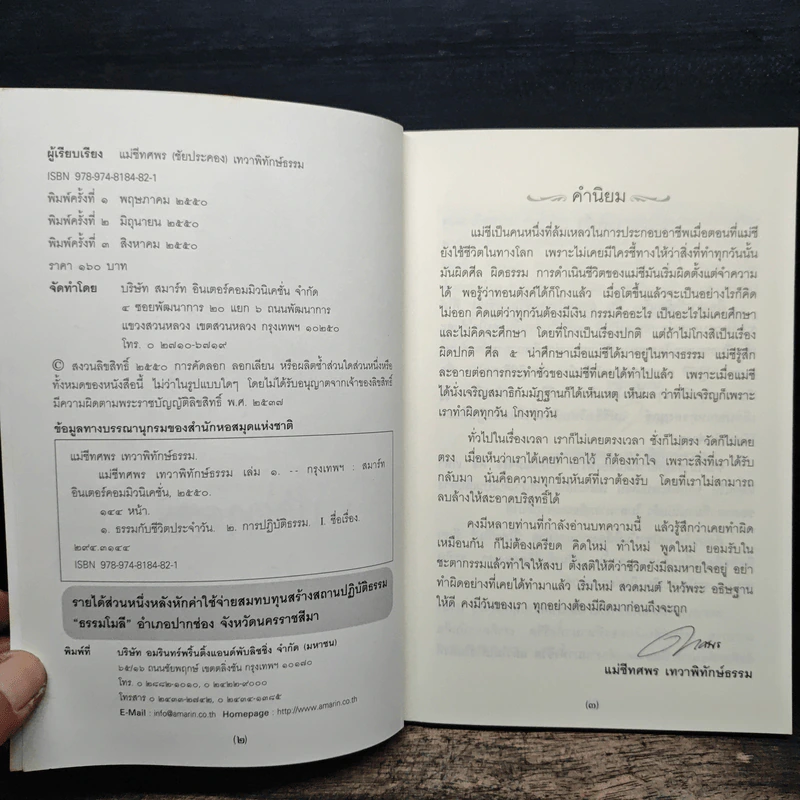 ผู้เรียบเรียง แม่ชีทศพร (ชัยประคอง) เทวาพิทักษ์ธรรม
ISBN 978-974-8184-82-1
พิมพ์ครั้งที่ ๑ พฤษภาคม ๒๕๕๐
พิมพ์ครั้งที่ ๒ มิถุนายน ๒๕๕๐
พิมพ์ครั้งที่ ๓ สิงหาคม ๒๕๕๐
ราคา ๑๖๐ บาท
จัดทำโดย บริษัท สมาร์ท อินเตอร์คอมมิวนิเคชั่น จำกัด
๔ ซอยพัฒนาการ ๒๐ แยก ๖ ถนนพัฒนาการ
แขวงสวนหลวง เขตสวนหลวง กรุงเทพฯ ๑๐๒๕๐
โทร. ๐ ๒๗๑๐-๖๗๑๙
© สงวนลิขสิทธิ์ ๒๕๕๐ การคัดลอก ลอกเลียน หรือผลิตซ้ำส่วนใดส่วนหนึ่งหรือ
ทั้งหมดของหนังสือนี้ ไม่ว่าในรูปแบบใดๆ โดยไม่ได้รับอนุญาตจากเจ้าของลิขสิทธิ์
มีความผิดตามพระราชบัญญัติลิขสิทธิ์ พ.ศ. ๒๕๓๗
ข้อมูลทางบรรณานุกรมของสำนักหอสมุดแห่งชาติ
แม่ชีทศพร เทวาพิทักษ์ธรรม.
แม่ชีทศพร เทวาพิทักษ์ธรรม เล่ม ๑. -- กรุงเทพฯ : สมาร์ท
อินเตอร์คอมมิวนิเคชั่น, ๒๕๕๐.
๑๔๔ หน้า.
๑. ธรรมกับชีวิตประจำวัน. ๒. การปฏิบัติธรรม. I. ชื่อเรื่อง.
๒๙๔.๓๑๔๔
ISBN 978-974-8184-82-1
รายได้ส่วนหนึ่งหลังหักค่าใช้จ่ายสมทบทุนสร้างสถานปฏิบัติธรรม
"ธรรมโมลี" อำเภอปากช่อง จังหวัดนครราชสีมา
พิมพ์ที่ บริษัท อมรินทร์พริ้นติ้งแอนด์พับลิชชิ่ง จำกัด (มหาชน)
๖๕/๑๖ ถนนชัยพฤกษ์ เขตตลิ่งชัน กรุงเทพฯ ๑๐๑๗๐
โทร. ๐ ๒๘๘๒-๑๐๑๐, ๐ ๒๔๒๒-๙๐๐๐
โทรสาร ๐ ๒๔๓๓-๒๗๔๒, ๐ ๒๔๓๔-๑๓๘๕
E-Mail : info@amarin.co.th Homepage : http://www.amarin.co.th
(๒)
คำนิยม
แม่ชีเป็นคนหนึ่งที่ล้มเหลวในการประกอบอาชีพเมื่อตอนที่แม่ชี
ยังใช้ชีวิตในทางโลก เพราะไม่เคยมีใครชี้ทางให้ว่าสิ่งที่ทำทุกวันนั้น
มันผิดศีล ผิดธรรม การดำเนินชีวิตของแม่ชีมันเริ่มผิดตั้งแต่จำความ
ได้ พอรู้ว่าทอนตังค์ได้ก็โกงแล้ว เมื่อโตขึ้นแล้วจะเป็นอย่างไรก็คิด
ไม่ออก คิดแต่ว่าทุกวันต้องมีเงิน กรรมคืออะไร เป็นอะไรไม่เคยศึกษา
และไม่คิดจะศึกษา โดยที่โกงเป็นเรื่องปกติ แต่ถ้าไม่โกงสิเป็นเรื่อง
ผิดปกติ ศีล ๕ น่าศึกษาเมื่อแม่ชีได้มาอยู่ในทางธรรม แม่ชีรู้สึก
ละอายต่อการกระทำชั่วของแม่ชีที่เคยได้ทำไปแล้ว เพราะเมื่อแม่ชี
ได้นั่งเจริญสมาธิกัมมัฏฐานก็ได้เห็นเหตุ เห็นผล ว่าที่ไม่เจริญก็เพราะ
เราทำผิดทุกวัน โกงทุกวัน
ทั่วไปในเรื่องเวลา เราก็ไม่เคยตรงเวลา ชั่งก็ไม่ตรง วัดก็ไม่เคย
ตรง เมื่อเห็นว่าเราได้เคยทำเอาไว้ ก็ต้องทำใจ เพราะสิ่งที่เราได้รับ
กลับมา นั่นคือความทุกข์มหันต์ที่เราต้องรับ โดยที่เราไม่สามารถ
ลบล้างให้สะอาดบริสุทธิ์ได้
คงมีหลายท่านที่กำลังอ่านบทความนี้ แล้วรู้สึกว่าเคยทำผิด
เหมือนกัน ก็ไม่ต้องเครียด คิดใหม่ ทำใหม่ พูดใหม่ ยอมรับใน
ชะตากรรมแล้วทำใจให้สงบ ตั้งสติให้ดีว่าชีวิตยังมีลมหายใจอยู่ อย่า
ทำผิดอย่างที่เคยได้ทำมาแล้ว เริ่มใหม่ สวดมนต์ ไหว้พระ อธิษฐาน
ให้ดี คงมีวันของเรา ทุกอย่างต้องมีผิดมาก่อนถึงจะถูก
แม่ชีทศพร เทวาพิทักษ์ธรรม
(๓)